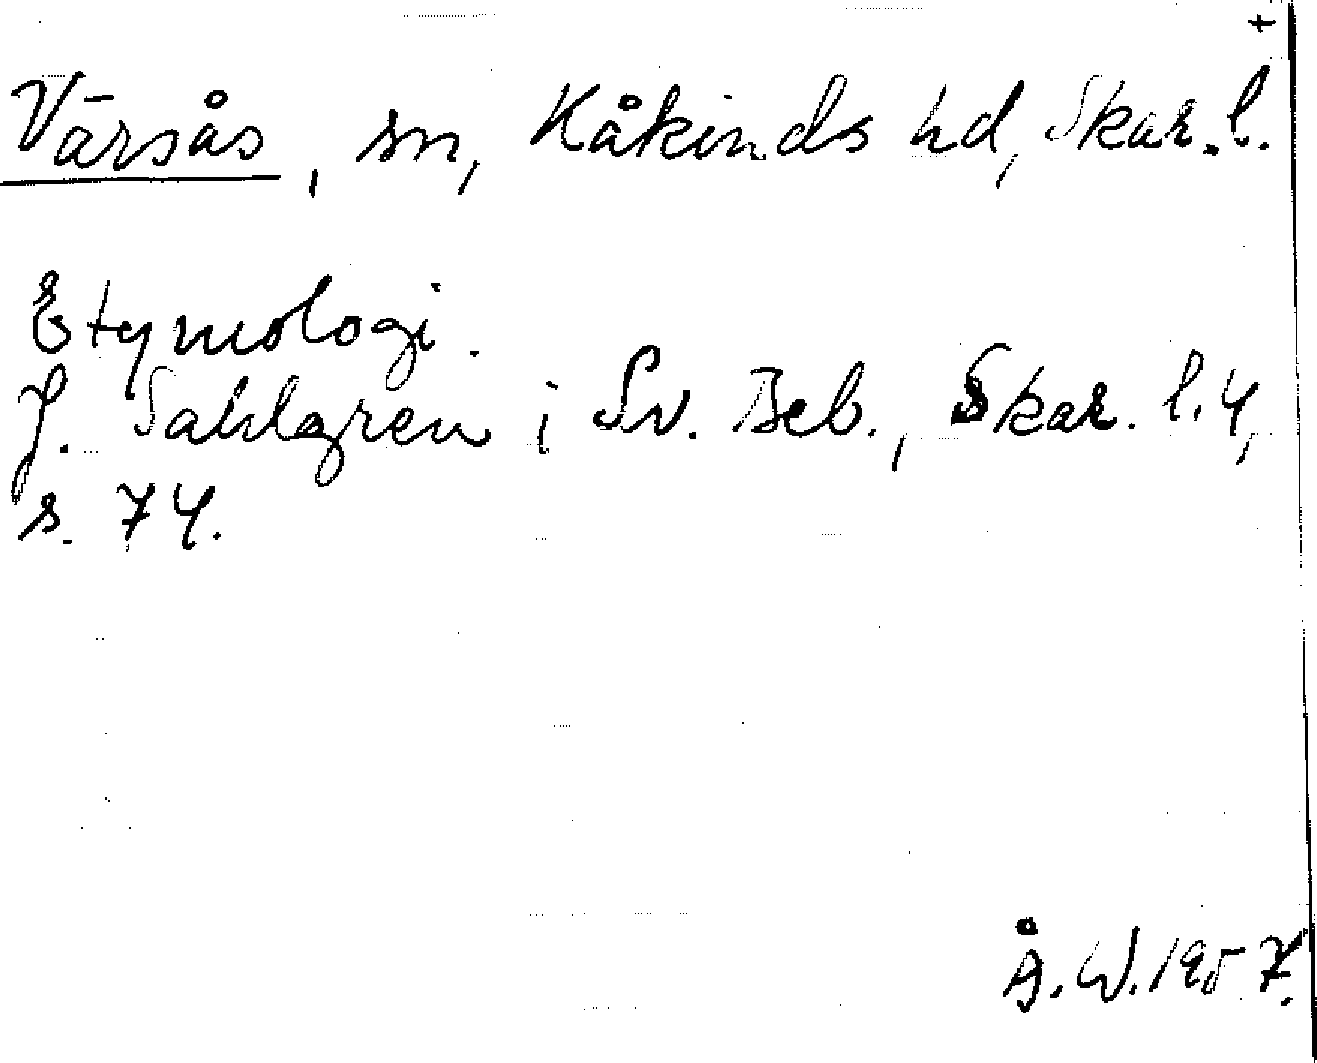 +
Värsås, sn, Kåkinds hd, Skar. l.
Etymologi.
J. Sahlgren i Sv. Beb., Skar. l. 4,
s. 74.
Å. W. 1957.